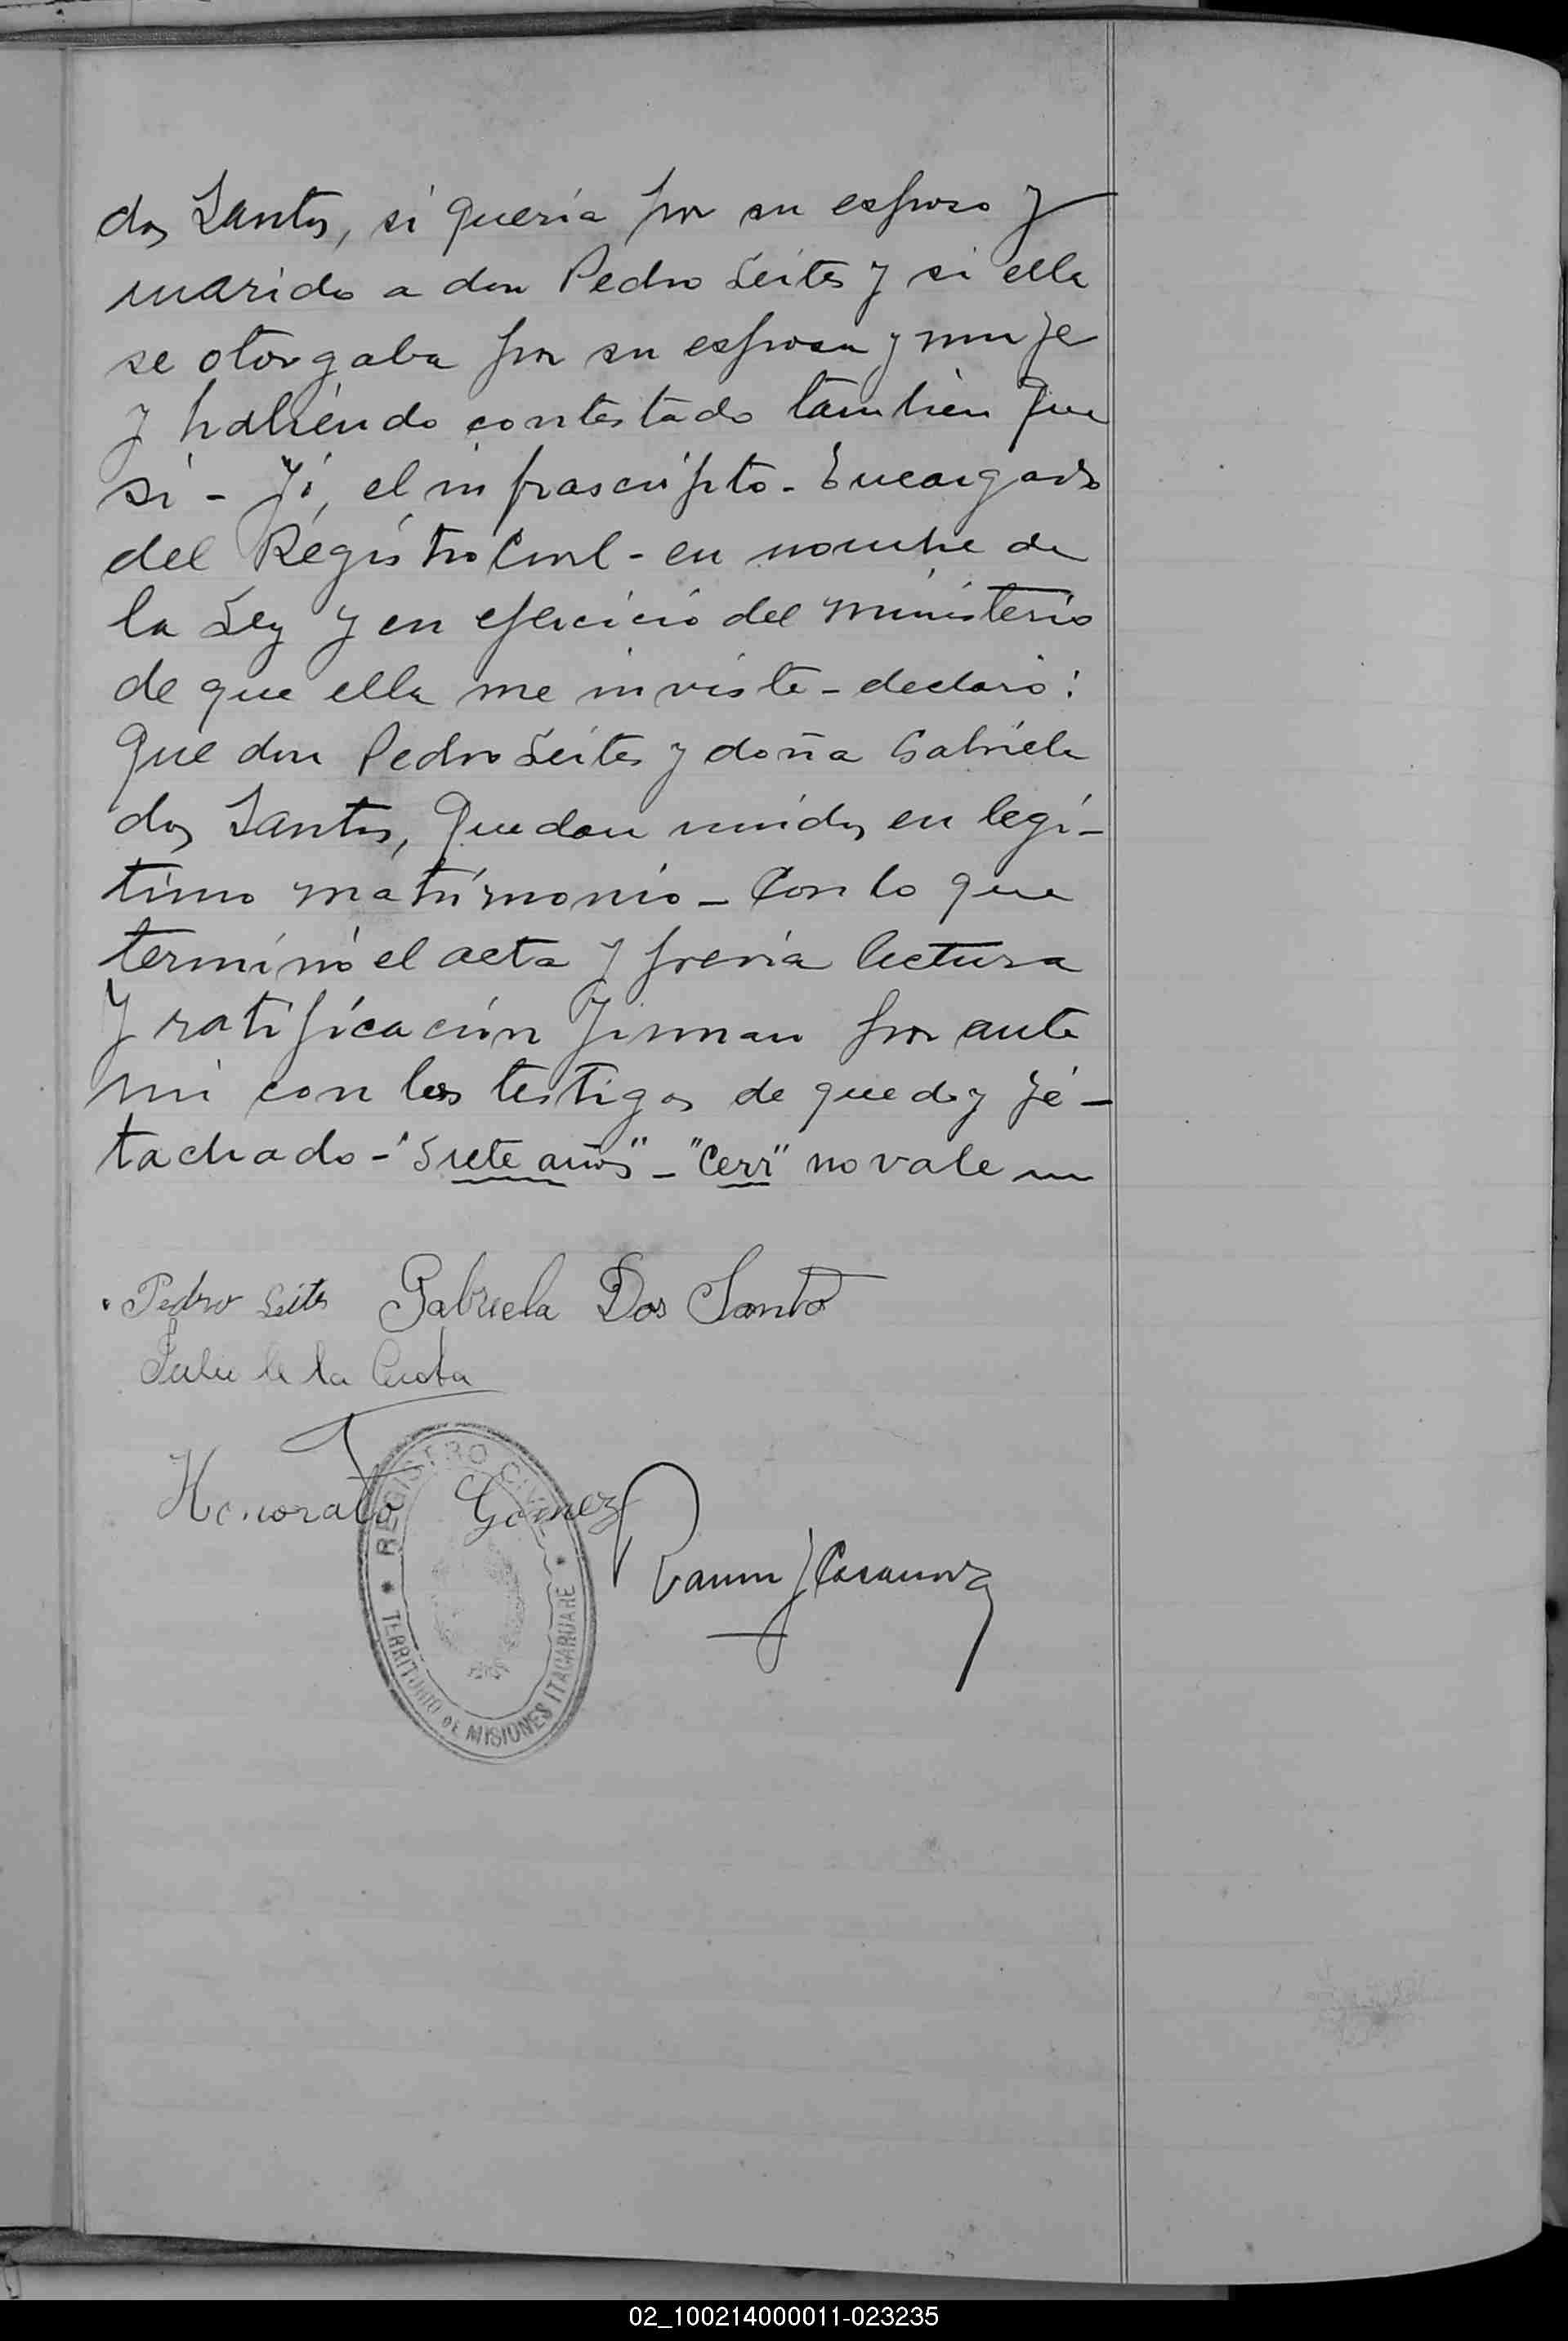 dos Santos, si quería por su esposo y
marido a don Pedro Leites y si ella
se otorgaba por su esposa y muje
y habiendo contestado también que
si - Yó, el infrascripto - Encargado
del Registro Civil - en nombre de
la Ley y en ejercicio del ministerio
de que ella me inviste - declaro:
Que don Pedro Leites y doña Gabriela
dos Santos, quedan unidos en legí-
timo matrimonio - Con lo que
terminó el acta y previa lectura
y ratificación firman por ante
mi con los testigos de que doy fé -
tachado - "Siete años" - "Cerr" no vale
Pedro Leites Gabriela Dos Santo
de la
Honorato Gomez
Ramon J Casanova
REGISTRO CIVIL
TERRITORIO DE MISIONES ITACARUARE
02_100214000011-023235